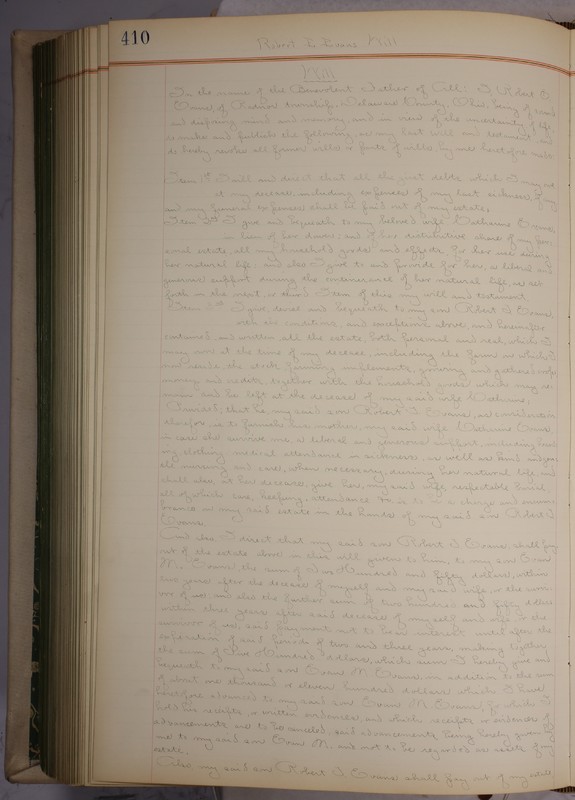 410
Robert E. Evans Will
Will
In the name of the Benevolent Father of All: I Robert E.
Evans, of Radnor township, Delaware County, Ohio, being of sound
and disposing mind and memory, and in view of the uncertainty of life,
do make and publish the following, as my last will and testament, and
do hereby revoke all former wills, or parts of wills, by me heretofore made.
Item 1st I will and direct that all the just debts which I may owe
at my decease, including expenses of my last sickness, if any
and my funeral expenses shall be paid out of my estate.
Item 2nd I give and bequeath to my beloved wife, Catharine Evans,
in lieu of her dower, and of her distributive share of my per-
sonal estate, all my household goods and effects, for her use during
her natural life: and also I give to and provide for her, a liberal and
generous support during the continuance of her natural life, as set
forth in the next, or third Item of this my will and testament.
Item 3rd I give, devise and bequeath to my son Robert J. Evans,
with the conditions, and exceptions above, and hereinafter
contained, and written all the estate both personal and real, which I
may own at the time of my decease, including the farm on which I
now reside, the stock, farming implements, growing and gathered crops
money and credits, together with the household goods which may re-
main and be left at the decease of my said wife Catharine;
Provided; that he my said son Robert J. Evans, in consideration
therefor, is to furnish his mother, my said wife Catharine Evans,
in case she survive me, a liberal and generous support, including board
ing, clothing, medical attendance in sickness, as well as kind
nursing and care, when necessary, during her natural life and
shall also, at her decease, give her, my said wife respectable burial,
all of which care, keeping, attendance to be a charge and incum-
brance on my said estate in the hands of my said son Robert J.
Evans.
And also I direct that my said son Robert J. Evans, shall pay
out of the estate above in this will given to him, to my son Evan
M. Evans, the sum of Two Hundred and fifty dollars, within
two years after the decease of myself and my said wife, or the survi-
vor of us: and also the further sum of two hundred and fifty dollars
within three years after said decease of my self and wife, or the
survivor of us, said payment not to bear interest until after the
expiration of said periods of two and three years, making together
the sum of Five Hundred dollars, which sum I hereby give and
bequeath to my said son Evan M. Evans, in addition to the sum
of about one thousand or eleven hundred dollars which I have
heretofore advanced to my said son Evan M. Evans, for which I
hold his receipts, or written evidence, and which receipts or evidence of
advancements are to be canceled, said advancements being hereby given by
me to my said son Evan M. and not to be regarded as assets of my
estate.
Also my said son Robert J. Evans shall pay out of my estate